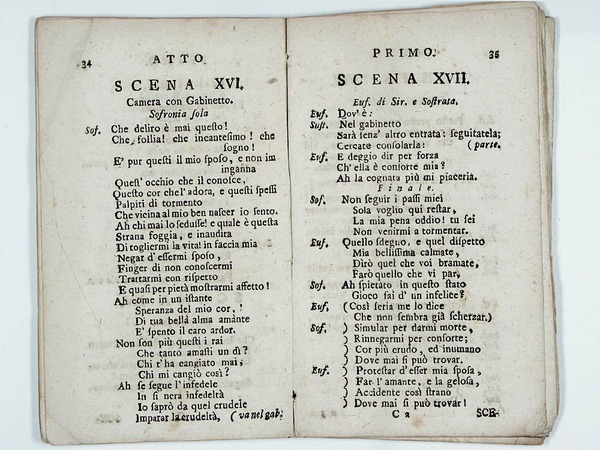 34
ATTO
SCENA XVI.
Camera con Gabinetto.
Sofronia sola
Sof. Che deliro è mai questo!
Che follia! che incantesimo! che
sogno!
E' pur questi il mio sposo, e non im
inganna
Quest' occhio che il conosce,
Questo cor che l'adora, e questi spessi
Palpiti di tormento
Che vicina al mio ben nascer io sento.
Ah chi mai lo sedusse! e quale è questa
Strana foggia, e inaudita
Di togliermi la vita! in faccia mia
Negar d'essermi sposo,
Finger di non conoscermi
Trattarmi con rispetto
E quasi per pietà mostrarmi affetto!
Ah come in un istante
Speranza del mio cor,!
Di tua bella alma amante
E' spento il caro ardor.
Non son più questi i rai
Che tanto amasti un dì?
Chi t'ha cangiato mai,
Chi mi cangiò così?
Ah se segue l'infedele
In sì nera infedeltà
Io saprò da quel crudele
Imparar la crudeltà, (va nel gab.
PRIMO.
35
SCENA XVII.
Euf. di Sir. e Sostrata.
Euf. Dov' è:
Sust. Nel gabinetto
Sarà senz' altro entrata: seguitatela;
Cercate consolarla: (parte.
Euf. E deggio dir per forza
Ch' ella è consorte mia?
Ah la cognata più mi piaceria.
Finale.
Sof. Non seguir i passi miei
Sola voglio qui restar,
La mia pena oddio! tu sei
Non venirmi a tormentar.
Euf. Quello sdegno, e quel dispetto
Mia bellissima calmate,
Dirò quel che voi bramate,
Farò quello che vi par.
Sof. Ah spietato in questo stato
Gioco fai d' un infelice?
Euf, (Così seria me lo dice
Che non sembra già scherzar.)
Sof. ) Simular per darmi morte,
) Rinnegarmi per consorte;
) Cor più crudo, ed inumano
) Dove mai si può trovar.
Euf. ) Protestar d'esser mia sposa,
) Far l'amante, e la gelosa,
) Accidente così strano
) Dove mai si può trovar!
C 2
SCE-